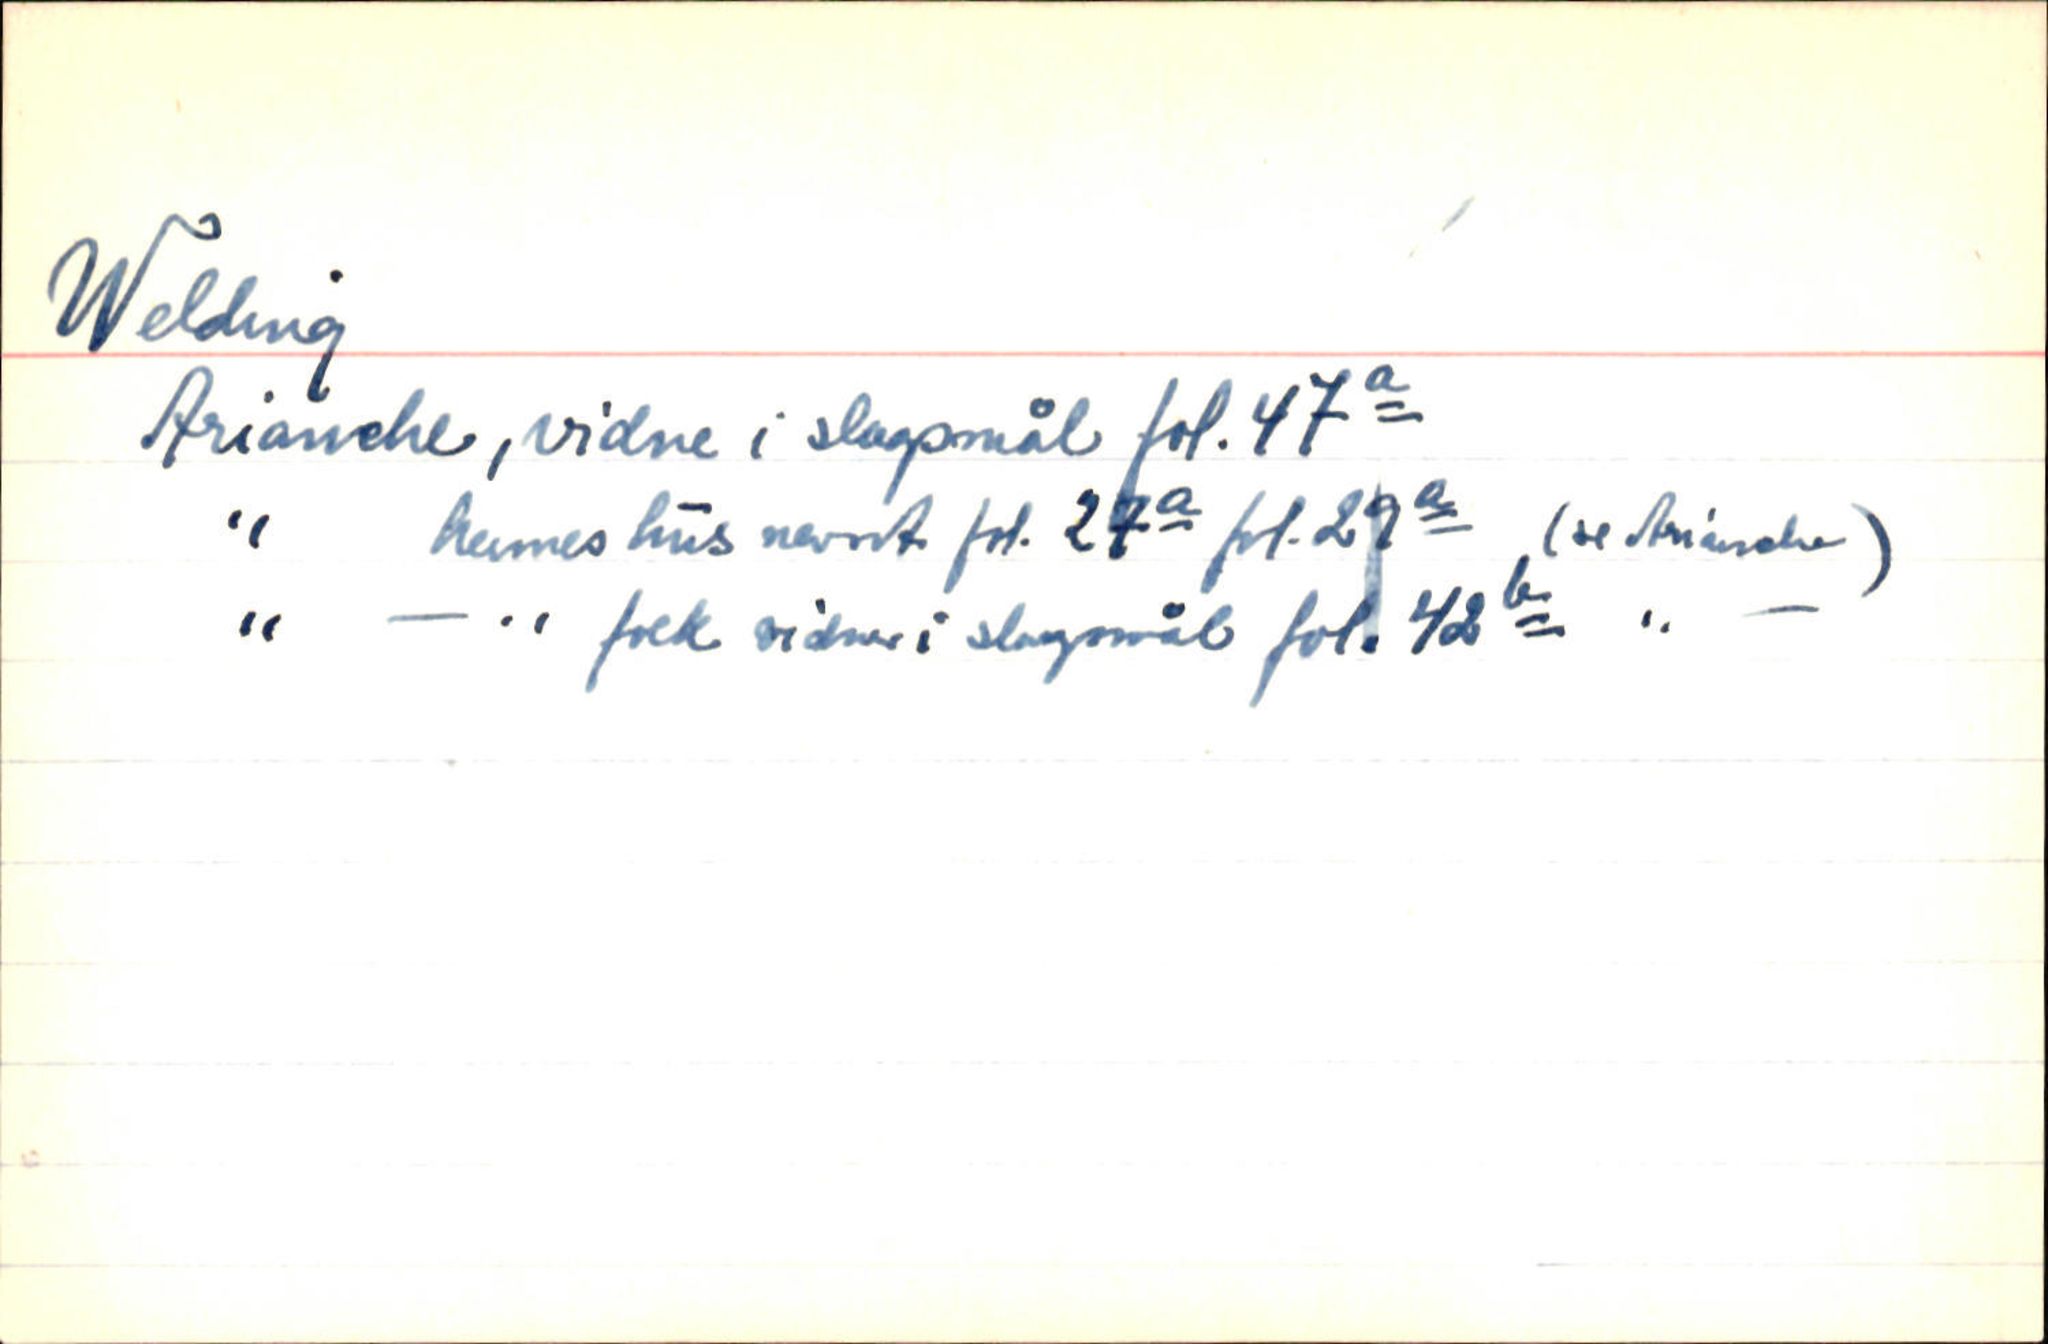 Welding
Arianche, vidne i slagsmål fol. 47a
" hennes hus nevnt fol. 27a fol. 29a (se Arianche)
" — " folk vidner i slagsmål fol. 42b " —